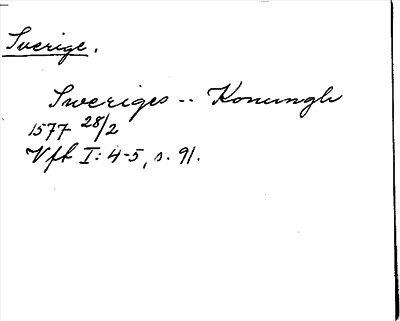 Sverige.
Sweriges -- Konungh
1577 28/2
Vfk I: 4-5, s. 91.